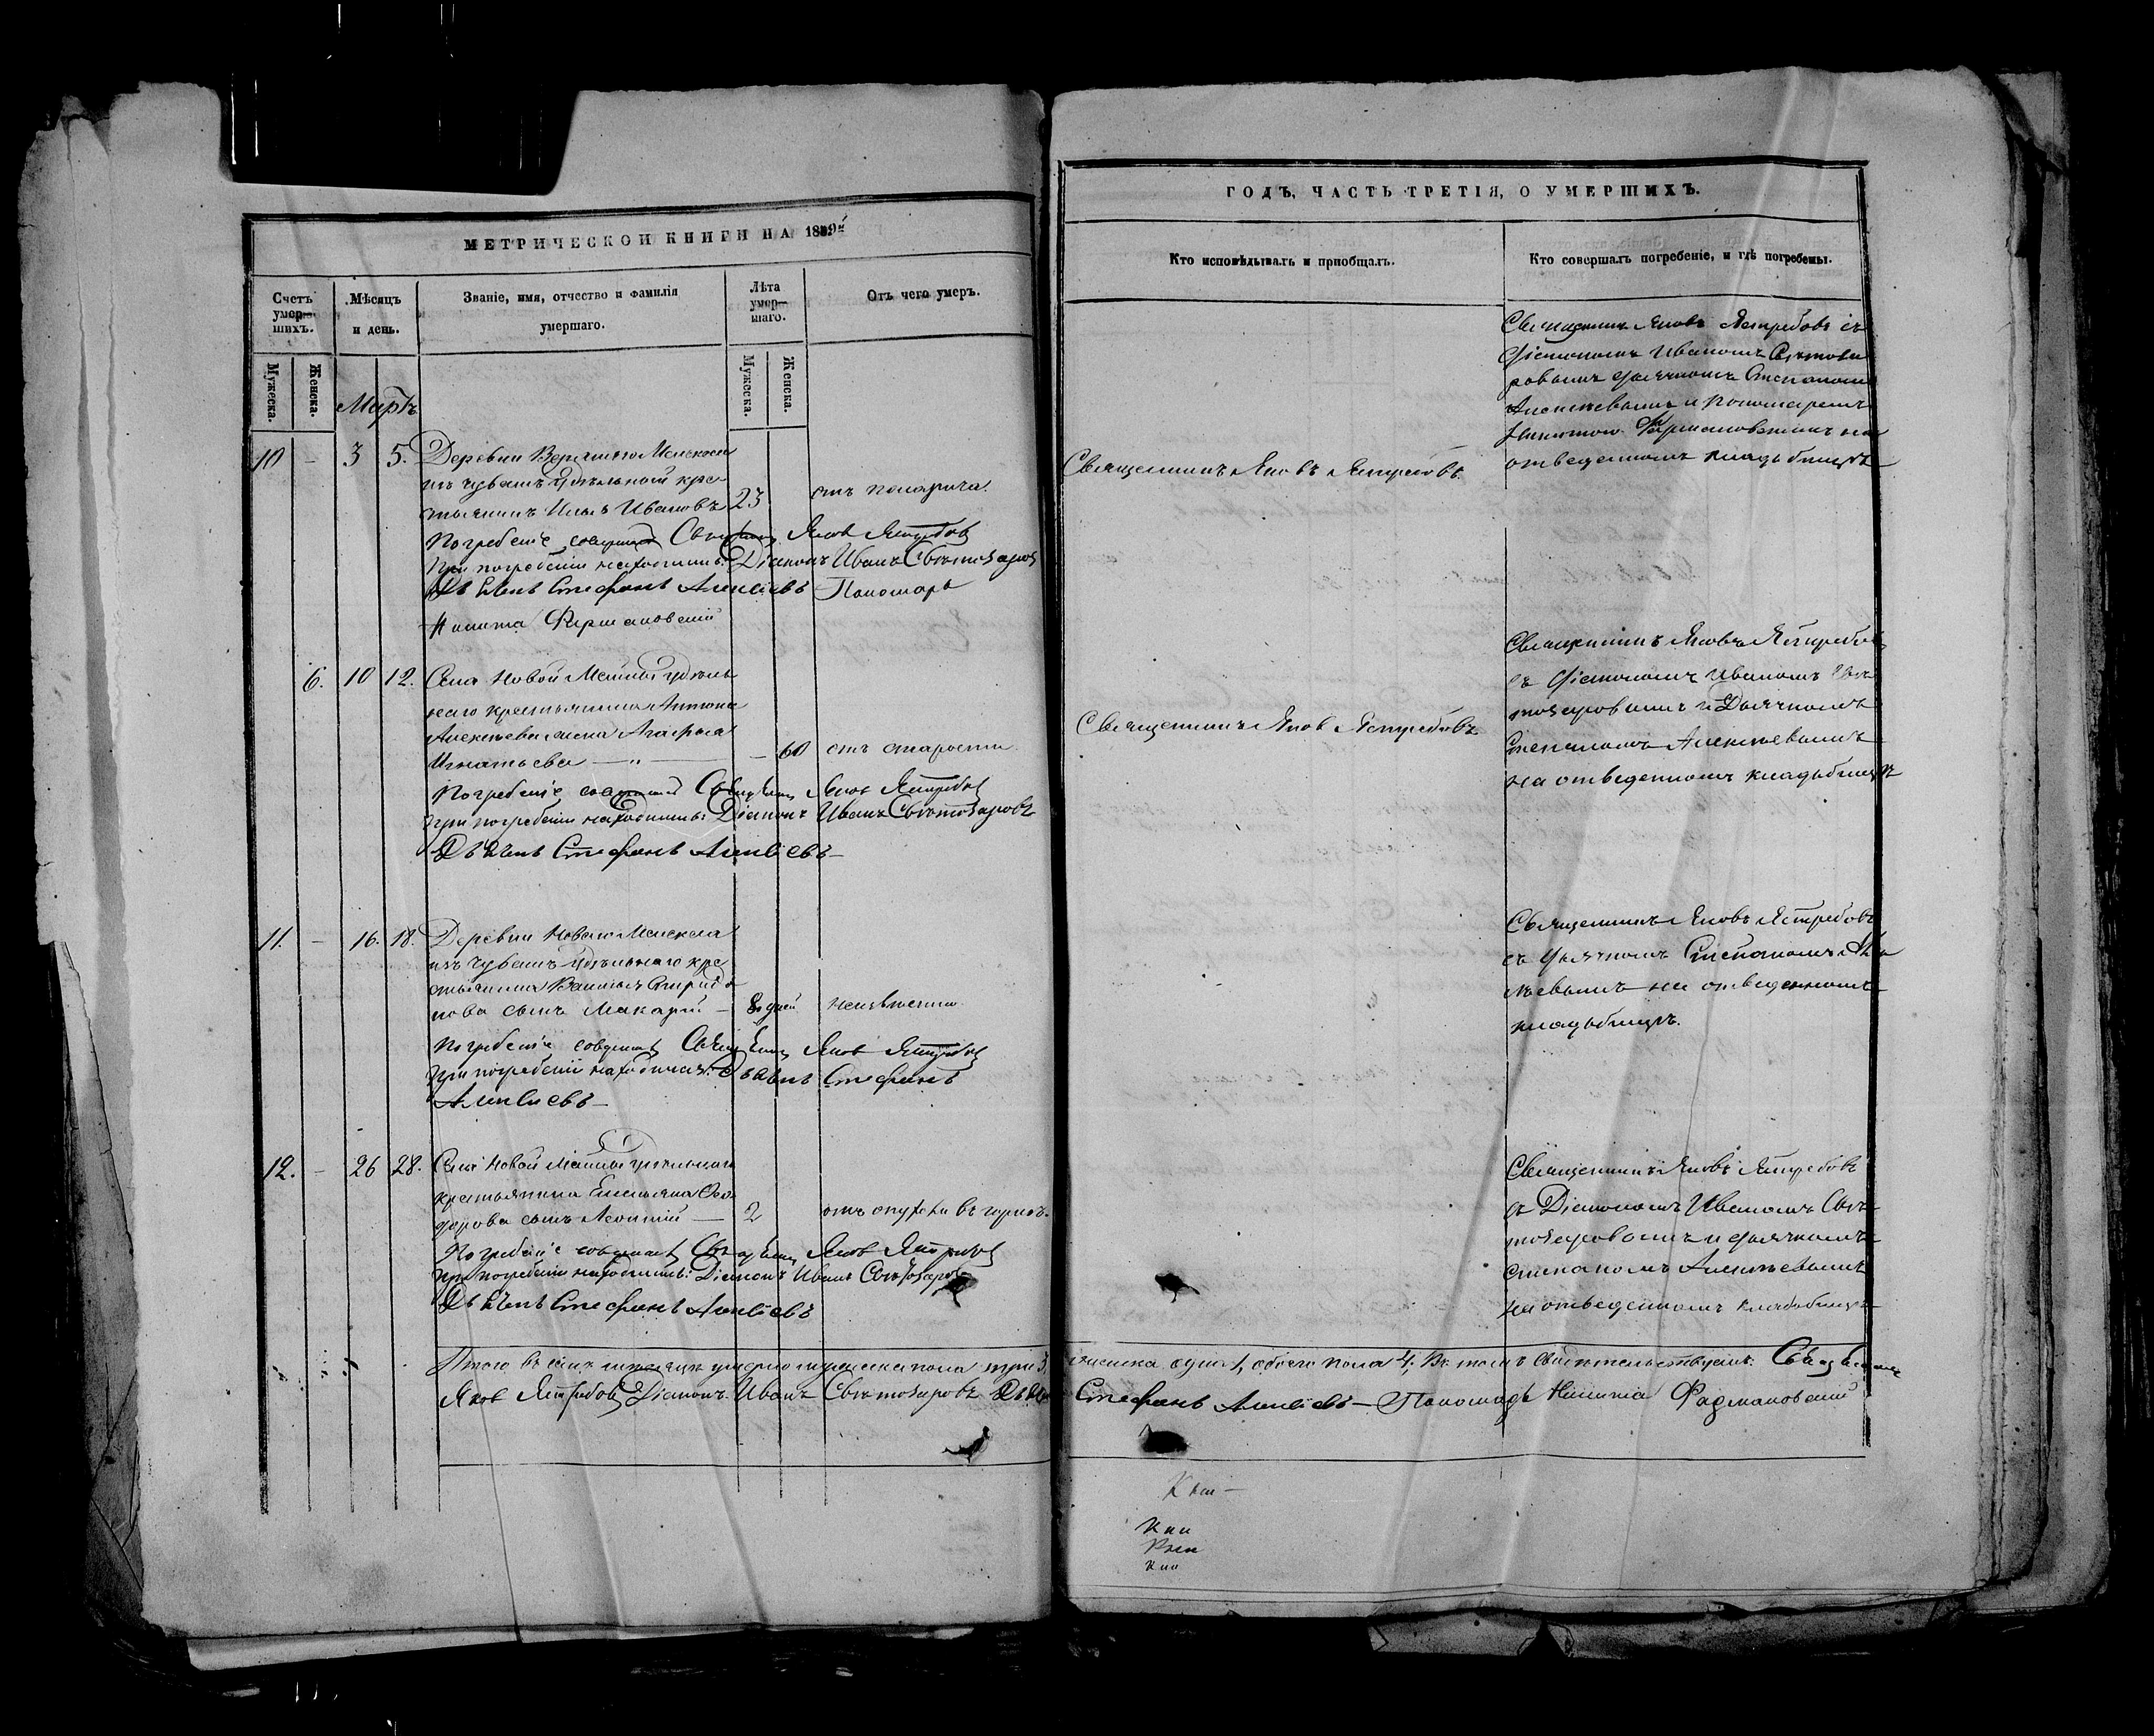 МЕТРИЧЕСКОЙ КНИГИ НА 1859й
Счетъ умер-шихъ.
Мѣсяцъ и день.
Званіе, имя, отчество и фамилія умершаго.
Лѣта умер-шаго.
Отъ чего умеръ.
Мужеска.
Женска.
Мужеска.
Женска.
Мартъ
10 — 3 5. Деревни
изъ чувашъ удѣльной кре-
стьянинъ Илья Ивановъ 23
Погребеніе совершалъ Священникъ Яковъ Ястребовъ
При погребеніи находились: Діаконъ Иванъ Свѣтозаровъ
Дьячекъ Стефанъ Алексіевъ Пономарь
Никита Фармаковскій
6. 10 12. Села Новой Майны удѣль-
наго крестьянина Антона
Алексѣева жена Агафья
Игнатьева — „ — — 60 отъ старости
Погребеніе совершалъ Священникъ Яковъ Ястребовъ
При погребеніи находились: Діаконъ Иванъ Свѣтозаровъ
Дьячекъ Стефанъ Алексіевъ —
11. — 16. 18. Деревни
изъ чувашъ удѣльнаго кре-
стьянина
нова сынъ Макарій — 8 дней неизвѣстно
Погребеніе совершалъ Священникъ Яковъ Ястребовъ
При погребеніи находился: Дьячекъ Стефанъ
Алексіевъ —
12. — 26 28. Села Новой Майны удѣльнаго
крестьянина Емельяна Ѳео-
дорова сынъ Леонтій — 2 отъ опухоли въ горлѣ.
Погребеніе совершалъ Священникъ Яковъ Ястребовъ
При погребеніи находились: Діаконъ Иванъ Свѣтозаровъ
Дьячекъ Стефанъ Алексіевъ
Итого въ семъ мѣсяцѣ умерло мужеска пола три 3,
Яковъ Ястребовъ Діаконъ Иванъ Свѣтозаровъ Дьячекъ
ГОДЪ, ЧАСТЬ ТРЕТІЯ, О УМЕРШИХЪ.
Кто исповѣдывалъ и пріобщалъ.
Кто совершалъ погребеніе, и гдѣ погребены.
Священникъ Яковъ Ястребовъ.
Священникъ Яковъ Ястребовъ съ
Діакономъ Иваномъ Свѣтоза-
ровымъ дьячкомъ Степаномъ
Алексѣевымъ и пономаремъ
Никитою Фармаковскимъ на
отведенномъ кладбищѣ
Священникъ Яковъ Ястребовъ
Священникъ Яковъ Ястребовъ
съ Діакономъ Иваномъ Свѣ-
тозаровымъ и Дьячкомъ
Степаномъ Алексѣевымъ
на отведенномъ кладбищѣ
Священникъ Яковъ Ястребовъ
съ дьячкомъ Степаномъ Але
ксѣевымъ на отведенномъ
кладбищѣ.
Священникъ Яковъ Ястребовъ
съ Діакономъ Иваномъ Свѣ-
тозаровымъ и дьячкомъ
Степаномъ Алексѣевымъ
на отведенномъ кладбищѣ
женска одна 1, обоего пола 4; въ томъ свидѣтельствуемъ: Священникъ
Стефанъ Алексіевъ — Пономарь Никита Фармаковскій